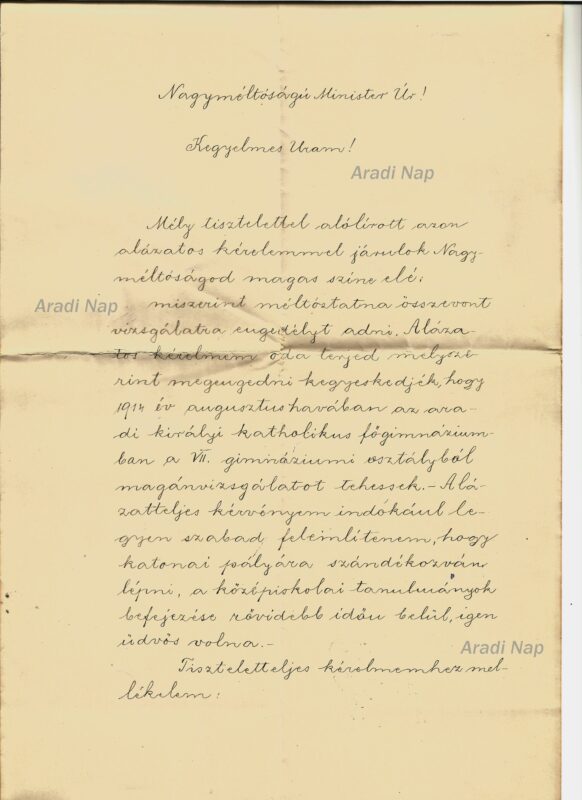 Nagyméltóságú Minister Úr!
Kegyelmes Uram!
Aradi Nap
Mély tisztelettel alólírott azon
alázatos kérelemmel járulok Nagy-
méltóságod magas színe elé:
Aradi Nap
miszerint méltóztatna összevont
vizsgálatra engedélyt adni. Aláza-
tos kérelmem oda terjed melysze-
rint megengedni kegyeskedjék, hogy
1914 év augusztus havában az ara-
di királyi katholikus főgimnázium-
ban a VII. gimnáziumi osztályból
magánvizsgálatot tehessek.- Alá-
zatteljes kérvényem indokául le-
gyen szabad felemlítenem, hogy
katonai pályára szándékozván
lépni, a középiskolai tanulmányok
befejezése rövidebb időn belül, igen
üdvös volna.-
Aradi Nap
Tiszteletteljes kérelmemhez mel-
lékelem: